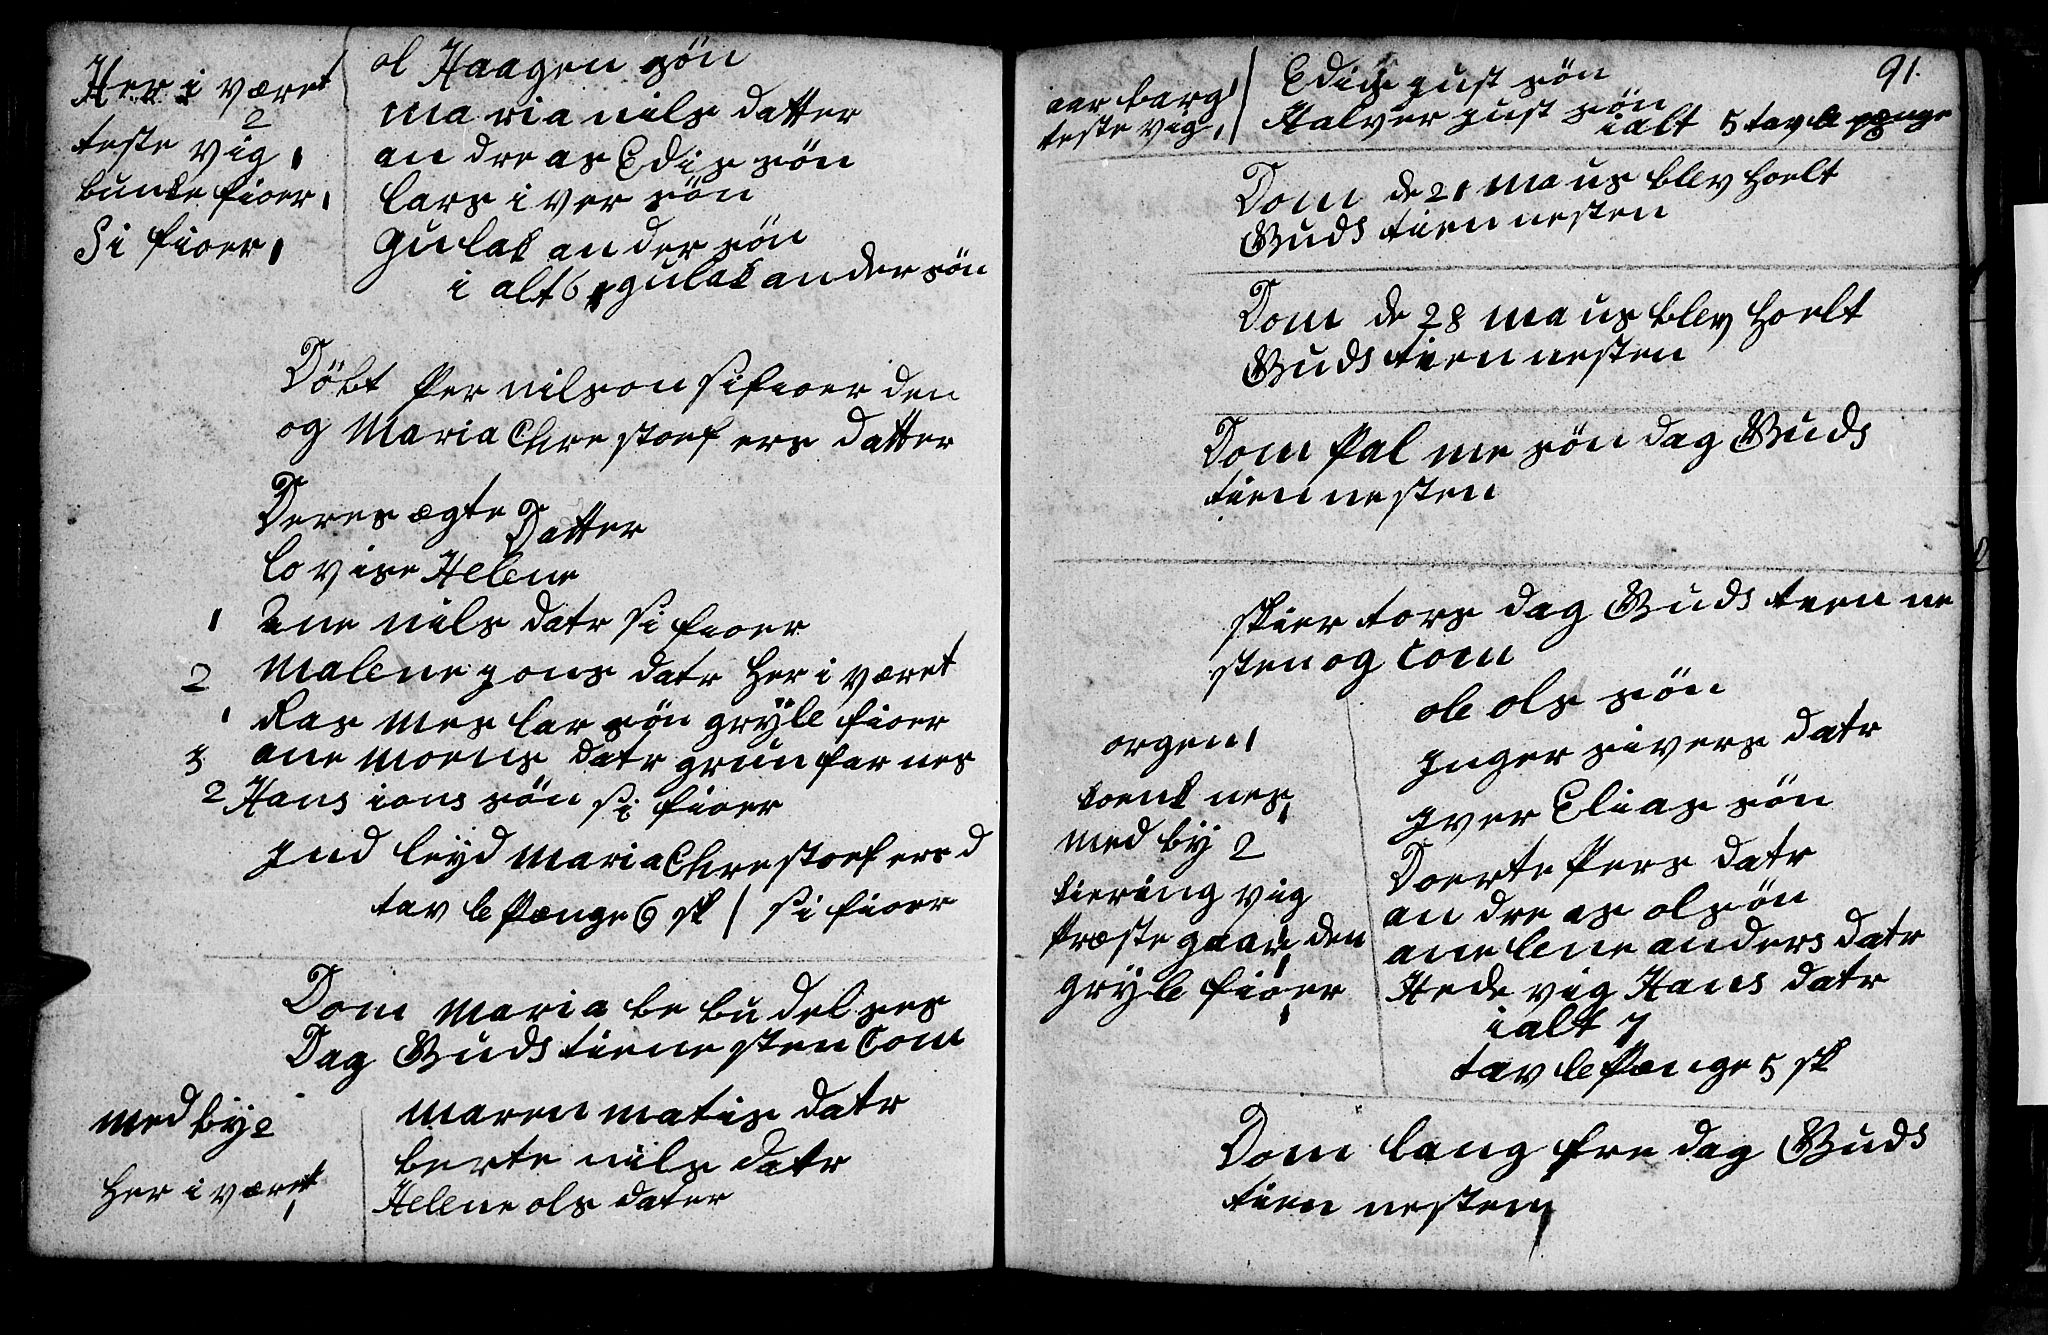 Her i været
2
teste vig 1
bunke fioer 1
Si fioer 1
ol Haagen søn
maria nils datter
an dre as Edis søn
lars i ver søn
gulak an der søn
i alt 6 gulak ander søn
Döbt Per nilson Sifioer den
og Maria Chre stoef ers datter
Deres ægte Datter
lo vise Helene
1 Ene nils datr Si fioer
2 Malene jons datr her i været
1 Ras mes lar søn grÿle fioer
3 ane moens datr grun far nes
2 Hans ions søn Si fioer
Ind leyd Maria Chrestoef ers d
tav le Pænge 6 sk / Si fioer
Dom Maria be bu del ses
Dag Guds tiene sten Com
med by 2
her i været 1
maren matis datr
berte nils datr
Helene ols dater
91.
aar barg 1
teste vig 1
Edis just søn
Halver just søn
ialt 5 tavle penge
Dom de 21 ma us blev hoelt
Guds tien nesten
Dom de 28 ma us blev hoelt
Guds tien nesten
Dom Pal me søn dag Guds
tien nesten
skier tors dag Guds tien ne
sten og Com
orgen 1
koenk nes 1
med by 2
kiering vig
Præste gaar den 1
gryle fioer 1
ole ols søn
Inger sivers datr
Iver Elias søn
Doerte Pers datr
an dre as ol søn
ane lene anders datr
Hede vig Hans datr
ialt 7
tav le Pænge 5 sk
Dom lang fre dag Guds
tien nesten